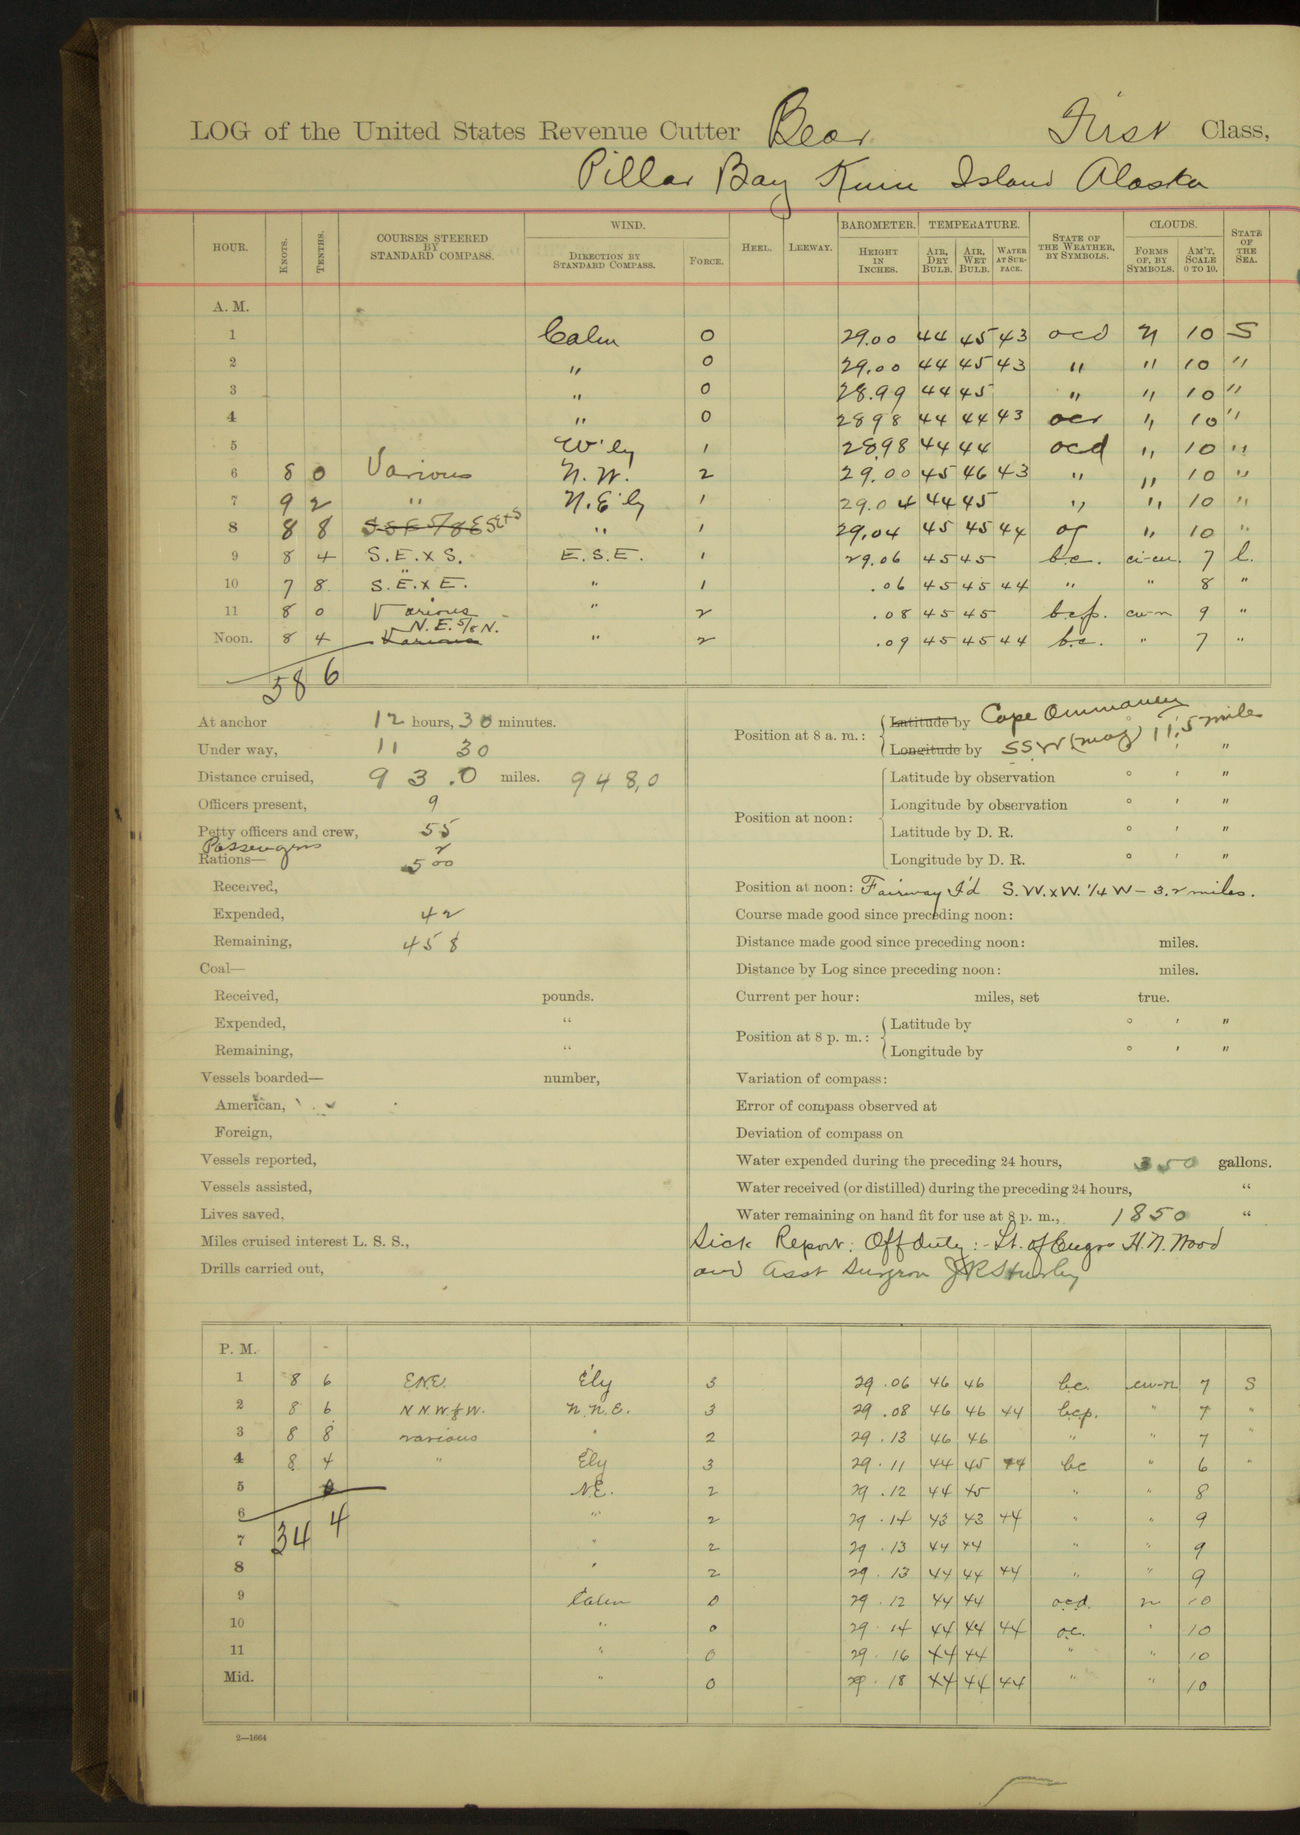 LOG of the United States Revenue Cutter Bear First Class,
Pillar Bay Kuiu Island Alaska
HOUR. KNOTS. TENTHS. COURSES STEERED BY STANDARD COMPASS. WIND. DIRECTION BY STANDARD COMPASS. FORCE. HEEL. LEEWAY. BAROMETER. HEIGHT IN INCHES. TEMPERATURE. AIR, DRY BULB. AIR, WET BULB. WATER AT SURFACE. STATE OF THE WEATHER, BY SYMBOLS. CLOUDS. FORMS OF, BY SYMBOLS. AM'T, SCALE 0 TO 10. STATE OF THE SEA.
A. M.
1 Calm 0 29.00 44 45 43 ocd n 10 S
2 " 0 29.00 44 45 43 " " 10 "
3 " 0 28.99 44 45 " " 10 "
4 " 0 28 98 44 44 43 ocr " 10 "
5 W'ly 1 28.98 44 44 ocd " 10 "
6 8 0 Various N.W. 2 29.00 45 46 43 " " 10 "
7 9 2 " N.E'ly 1 29.04 44 45 " " 10 "
8 8 8 SExS " 1 29.04 45 45 44 og " 10 "
9 8 4 S.E.x S. E.S.E. 1 29.06 45 45 b.c. ci-cu. 7 l.
10 7 8 S.E.x E. " 1 .06 45 45 44 " " 8 "
11 8 0 Various " 2 .08 45 45 b.c.p. cu-n 9 "
Noon. 8 4 N.E. 5/8 N. Various " 2 .09 45 45 44 b.c. " 7 "
58 6
At anchor 12 hours, 30 minutes.
Under way, 11 30
Distance cruised, 93.0 miles. 948,0
Officers present, 9
Petty officers and crew, 55
Passengers 2
Rations— 500
Received,
Expended, 42
Remaining, 458
Coal—
Received, pounds.
Expended, "
Remaining, "
Vessels boarded— number,
American,
Foreign,
Vessels reported,
Vessels assisted,
Lives saved,
Miles cruised interest L. S. S.,
Drills carried out,
Position at 8 a. m.: Latitude by Cape Ommaney
Longitude by SSW (mag) 11,5 miles ' "
Position at noon: Latitude by observation ° ' "
Longitude by observation ° ' "
Latitude by D. R. ° ' "
Longitude by D. R. ° ' "
Position at noon: Fairway I'd S.W.xW. 1/4 W – 3.2 miles.
Course made good since preceding noon:
Distance made good since preceding noon: miles.
Distance by Log since preceding noon: miles.
Current per hour: miles, set true.
Position at 8 p. m.: Latitude by ° ' "
Longitude by ° ' "
Variation of compass:
Error of compass observed at
Deviation of compass on
Water expended during the preceding 24 hours, 350 gallons.
Water received (or distilled) during the preceding 24 hours, "
Water remaining on hand fit for use at 8 p. m., 1850 "
Sick Report: Off duty:- Lt. of Engrs H.N. Wood
and Asst Surgeon
P. M.
1 8 6 ENE. E'ly 3 29.06 46 46 bc. cu-n 7 S
2 8 6 N N.W.½W. N.N.E. 3 29.08 46 46 44 b.c.p. " 7 "
3 8 8 various " 2 29.13 46 46 " " 7 "
4 8 4 " E'ly 3 29.11 44 45 44 bc " 6 "
5 N.E. 2 29.12 44 45 " " 8
6 " 2 29.14 43 43 44 " " 9
34 4
7 " 2 29.13 44 44 " " 9
8 " 2 29.13 44 44 44 " " 9
9 Calm 0 29.12 44 44 ocd. n 10
10 " 0 29.14 44 44 44 oc. " 10
11 " 0 29.16 44 44 " " 10
Mid. " 0 29.18 44 44 44 " " 10
2—1664